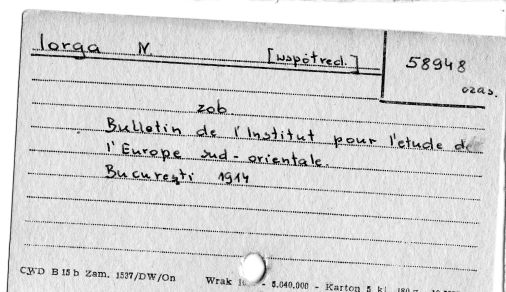 Iorga N. [współred.] 58948
czas.
zob
Bulletin de l'Institut pour l'etude de
l'Europe sud-orientale.
București 1914
CWD B 15 b Zam. 1537/DW/On Wrak - 5.040.000 - Karton 5 kl.